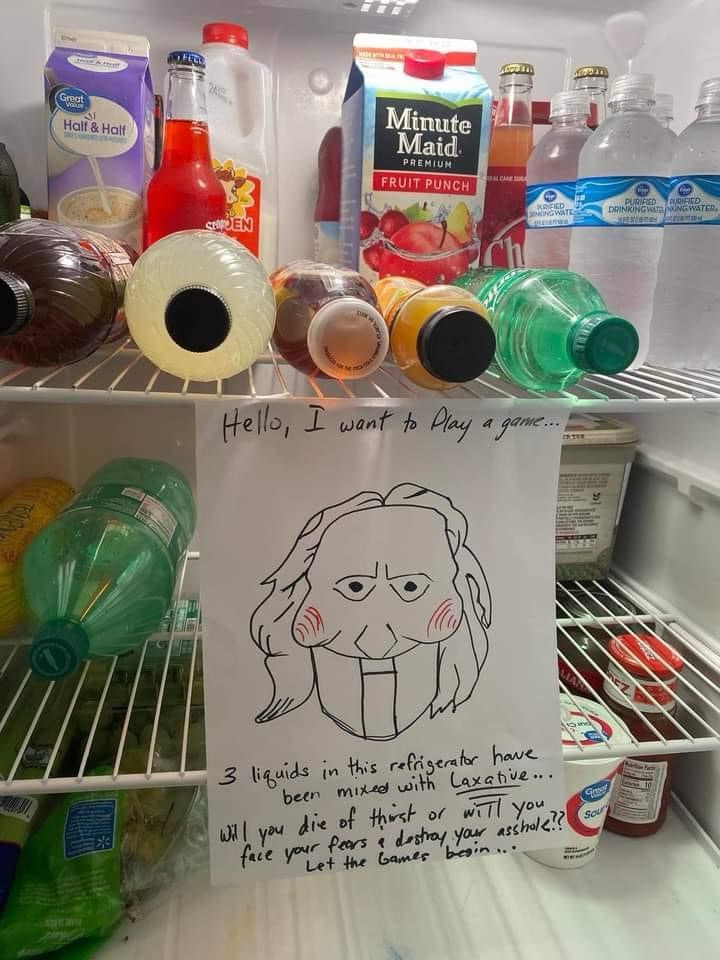 Great Value
Half & Half
Minute
Maid
PREMIUM
FRUIT PUNCH
PURIFIED
DRINKING WATER
PURIFIED
DRINKING WATER
PURIFIED
DRINKING WATER
Hello, I want to Play a game...
3 liquids in this refrigerator have
been mixed with Laxative...
Will you die of thirst or will you
face your fears & destroy your asshole??
Let the Games begin...
Great Value
Sour
Nutrition Facts